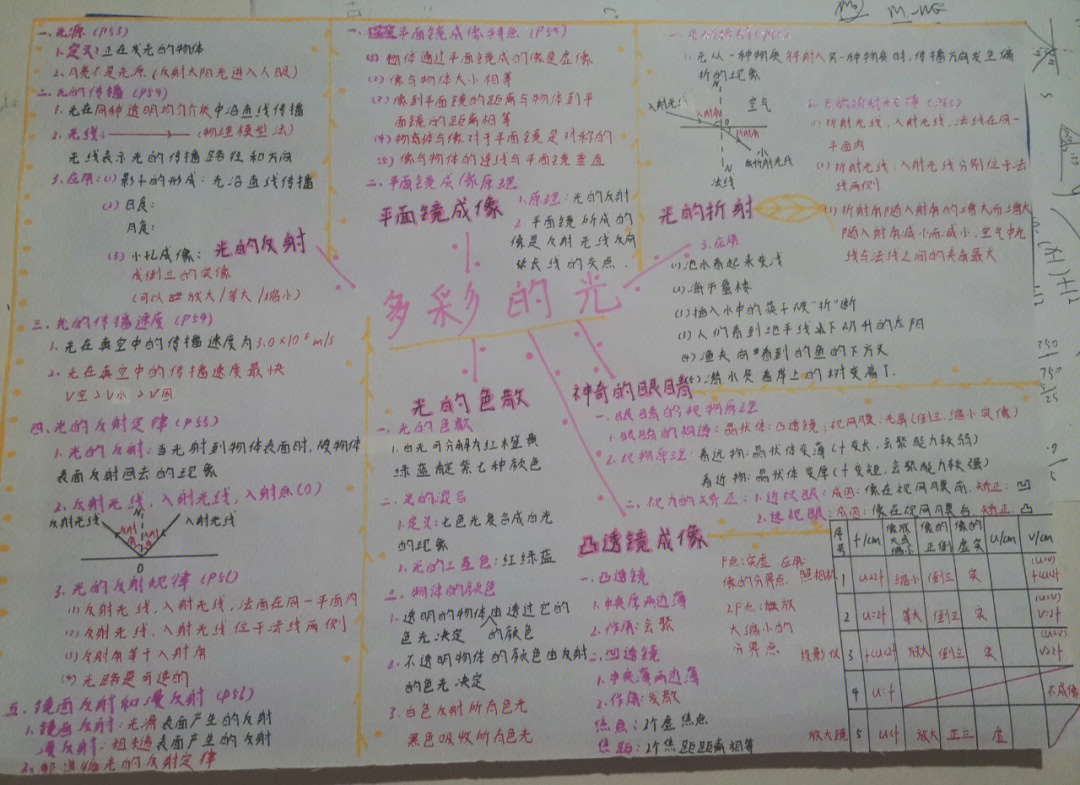 一、光源(P53)
1.定义:正在发光的物体
2.月亮不是光源(反射太阳光进入人眼)
二、光的传播(P54)
1.光在同种透明均匀介质中沿直线传播
2.光线: (物理模型法)
光线表示光的传播路径和方向
3.应用:(1)影子的形成:光沿直线传播
(2)日食:
月食:
(3)小孔成像:
成倒立的实像
(可以放大/等大/缩小)
光的反射
三、光的传播速度(P54)
1.光在真空中的传播速度为3.0×10⁸m/s
2.光在真空中的传播速度最快
四、光的反射定律(P55)
1.光的反射:当光射到物体表面时,被物体
表面反射回去的现象
2.反射光线,入射光线,入射点(O)
反射光线
N
入射光线
O
3.光的反射规律(P56)
(1)反射光线,入射光线,法线在同一平面内
(2)反射光线,入射光线位于法线两侧
(3)反射角等于入射角
(4)光路是可逆的
五、镜面反射和漫反射(P56)
1.镜面反射:光滑表面产生的反射
漫反射:粗糙表面产生的反射
2.都遵循光的反射定律
平面镜成像特点
(1)物体通过平面镜成的像是虚像
(2)像与物体大小相等
(3)像到平面镜的距离与物体到平
面镜的距离相等
(4)物体与像对于平面镜是对称的
(5)像与物体的连线与平面镜垂直
二、平面镜成像原理
1.原理:光的反射
2.平面镜所成的
像是反射光线反向
延长线的交点.
平面镜成像
1.光从一种物质斜射入另一种物质时,传播方向发生偏
折的现象
入射光
N
空气
入射角
O
水
折射光线
N
法线
(1)折射光线,入射光线,法线在同一
平面内
(2)折射光线,入射光线分别位于法
线两侧
(3)折射角随入射角的增大而增大
随入射角减小而减小,空气中光
线与法线之间的夹角最大
光的折射
3.应用
(1)池水看起来变浅
(2)海市蜃楼
(3)人们看到地平线以下的太阳
多彩的光
光的色散
一、光的色散
1.白光可分解为红橙黄
绿蓝靛紫七种颜色
二、光的混合
1.定义:七色光复合成白光
的现象
2.光的三基色:红绿蓝
三、物体的颜色
1.透明的物体由透过它的
色光决定 的颜色
2.不透明物体的颜色由反射
的色光决定
3.白色反射所有色光
黑色吸收所有色光
神奇的眼睛
一、眼睛的视物原理
1.眼睛的构造:晶状体:凸透镜;视网膜:光屏(倒立、缩小实像)
2.视物原理:看远物:晶状体变薄(f变长,会聚能力较弱)
看近物:晶状体变厚(f变短,会聚能力较强)
二、视力的矫正:1.近视眼:成因:像在视网膜前.矫正:凹
2.远视眼:成因:像在视网膜后.矫正:凸
凸透镜成像
一、凸透镜
1.中央厚两边薄
2.作用:会聚
二、凹透镜
1.中央薄两边厚
2.作用:发散
焦点:2个虚焦点
焦距:2个焦距距离相等
F点:实虚
像的分界点
2F点:像放
大缩小的
分界点
序号 f/cm 像放大或缩小 像的正倒 像的虚实 u/cm v/cm
照相机 1 u>2f 缩小 倒立 实 f<v<2f
2 u=2f 等大 倒立 实 v=2f
投影仪 3 f<u<2f 放大 倒立 实 v>2f
4 u=f 不成像
放大镜 5 u<f 放大 正立 虚